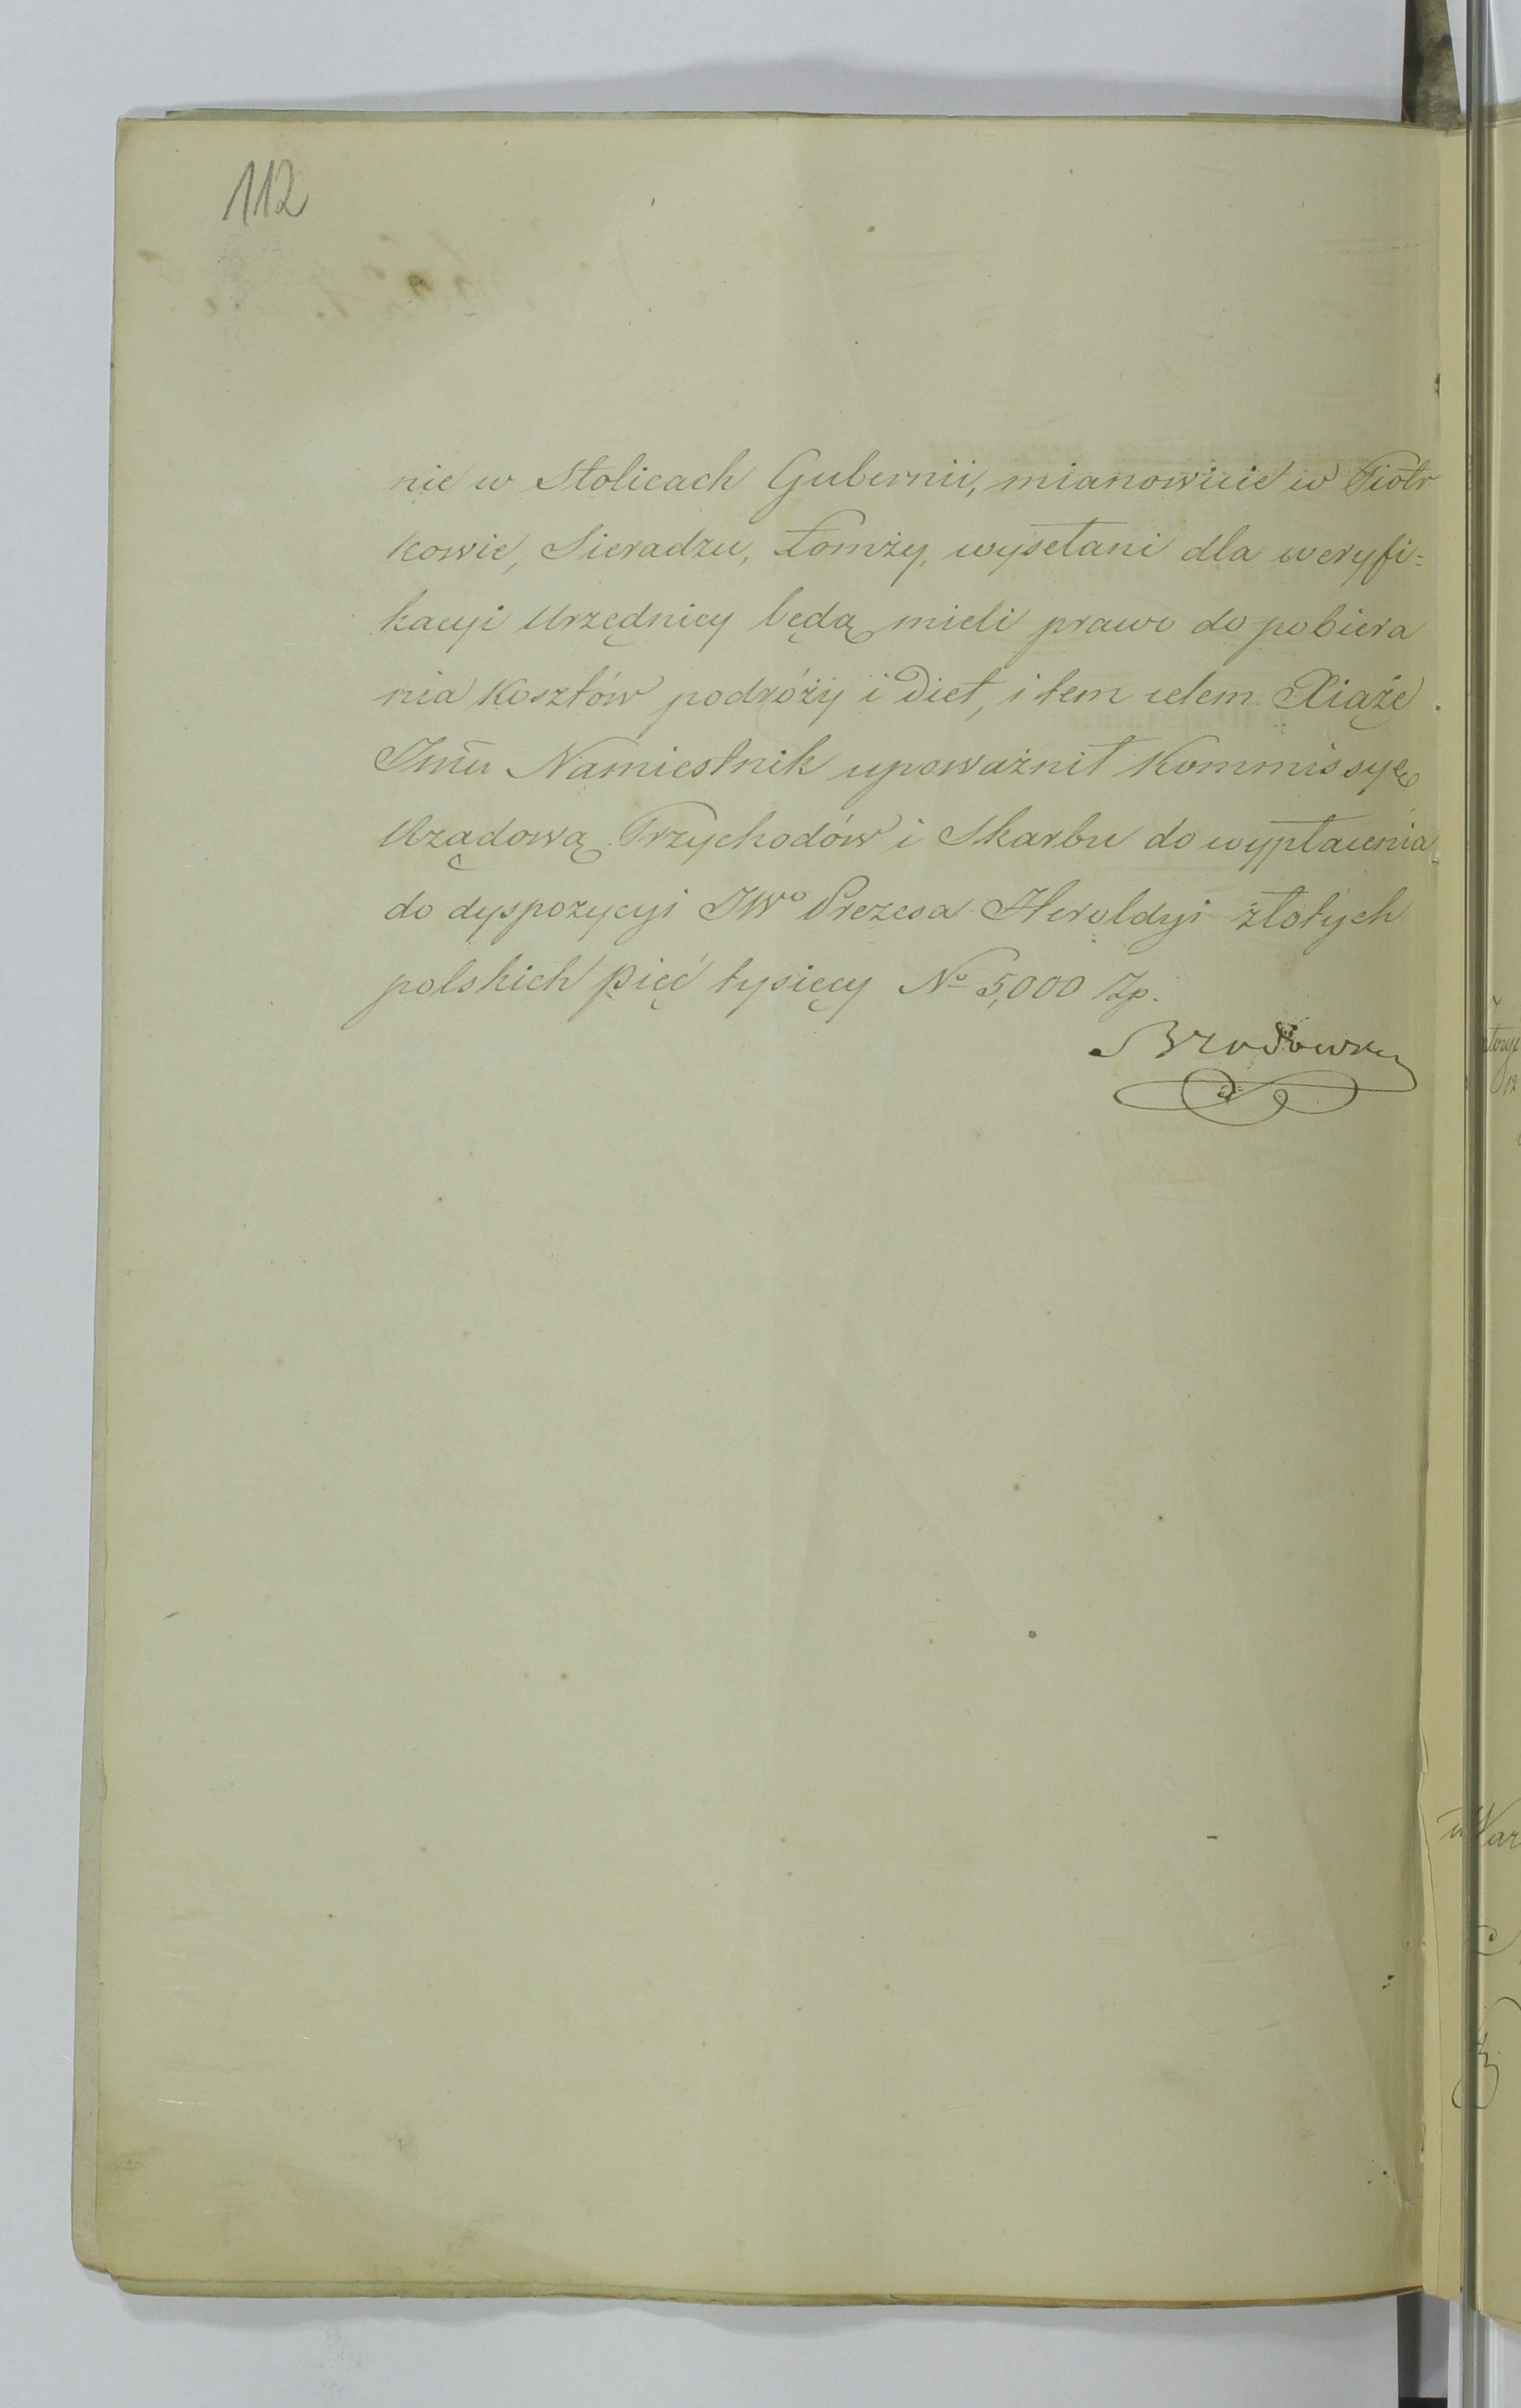 112
nie w Stolicach Gubernii, mianowicie w Piotr
kowie, Sieradzu, Łomży, wysełani dla weryfi=
kacyi Urzędnicy będą mieli prawo do pobiera
nia Kosztów podróży i Diet, i tem celem Xiąże
Jmć Namiestnik upoważnił Kommissyę
Rządową Przychodów i Skarbu do wypłacenia
do dyspozycyi JWo Prezesa Heroldyi złotych
polskich pięć tysięcy No 5,000 Zp.
Brodowski